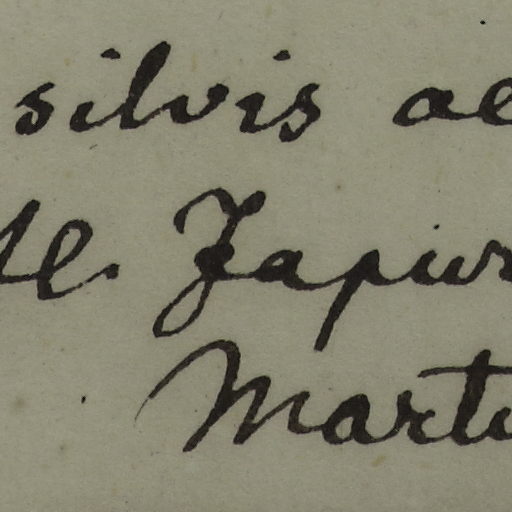 silvis ae
fl. Japur
Marti